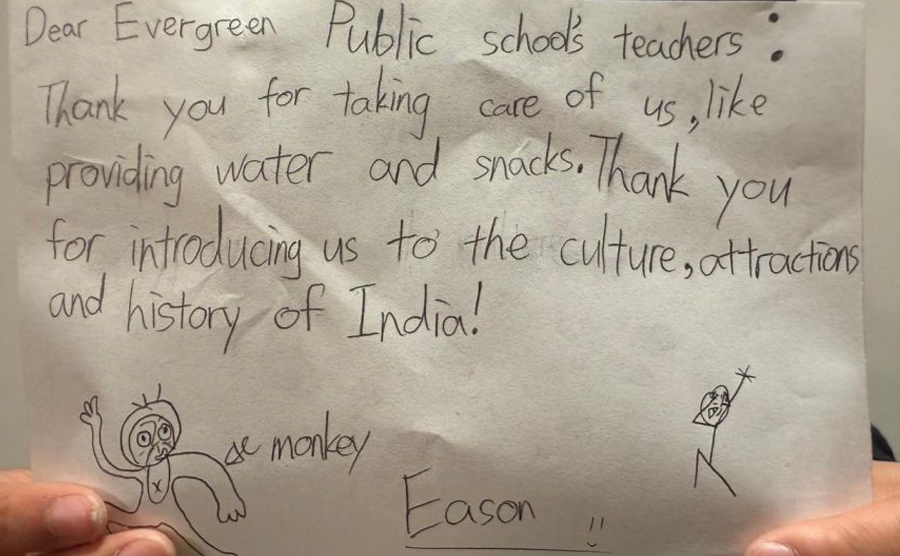 Dear Evergreen Public school's teachers:
Thank you for taking care of us, like
providing water and snacks. Thank you
for introducing us to the culture, attractions
and history of India!
monkey
Eason !!